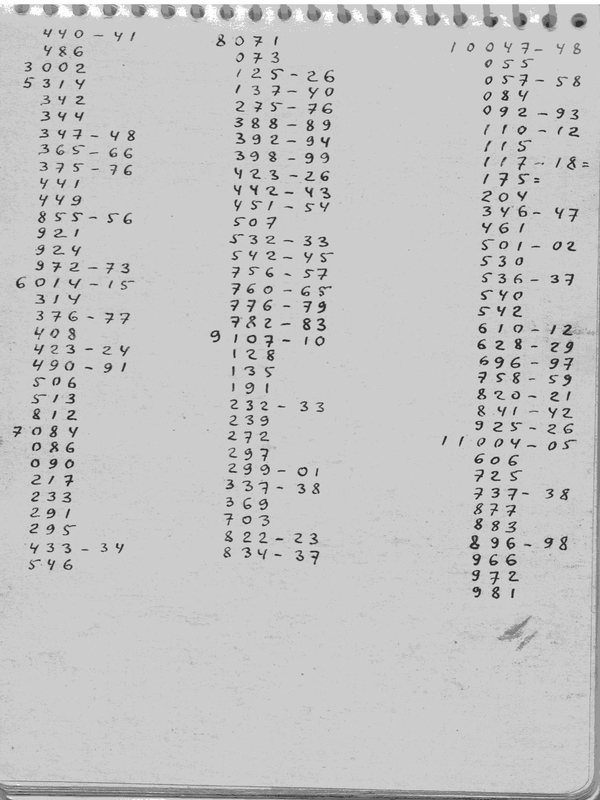 440-41
486
3002
5314
342
344
347-48
365-66
375-76
441
449
855-56
921
924
972-73
6014-15
314
376-77
408
423-24
490-91
506
513
812
7084
086
090
217
233
291
295
433-34
546
8071
073
125-26
137-40
275-76
388-89
392-94
398-99
423-26
442-43
451-54
507
532-33
542-45
756-57
760-65
776-79
782-83
9107-10
128
135
191
232-33
239
272
297
299-01
337-38
369
703
822-23
834-37
10047-48
055
057-58
084
092-93
110-12
115
117-18=
175=
204
346-47
461
501-02
530
536-37
540
542
610-12
628-29
696-97
758-59
820-21
841-42
925-26
11004-05
606
725
737-38
877
883
896-98
966
972
981